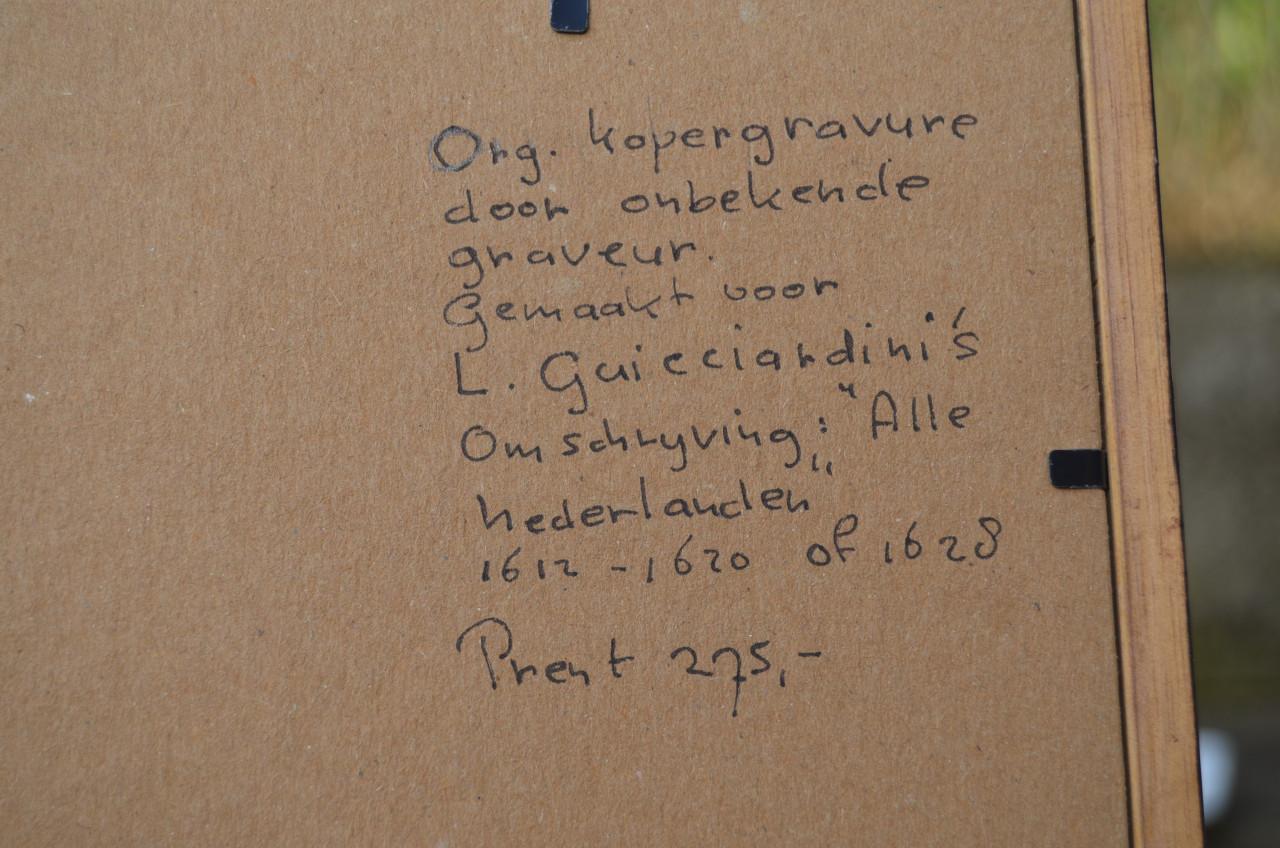 Org. kopergravure
door onbekende
graveur.
Gemaakt voor
L. Guicciardini's
Omschryving: "Alle
Nederlanden"
1612 - 1620 of 1628
Prent 275,-